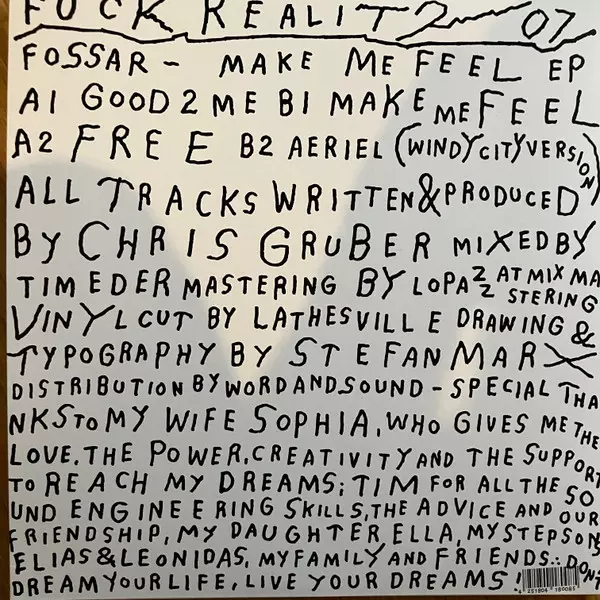 FUCK REALITY 07
FOSSAR - MAKE ME FEEL EP
A1 GOOD 2 ME B1 MAKE ME FEEL
A2 FREE B2 AERIEL (WINDYCITYVERSION)
ALL TRACKS WRITTEN & PRODUCED
BY CHRIS GRUBER MIXED BY
TIM EDER MASTERING BY LOPAZZ AT MIX MA
STERING
VINYLCUT BY LATHESVILLE DRAWING &
TYPOGRAPHY BY STEFAN MARX
DISTRIBUTION BY WORDANDSOUND - SPECIAL THA
NKS TO MY WIFE SOPHIA, WHO GIVES ME THE
LOVE, THE POWER, CREATIVITY AND THE SUPPORT
TO REACH MY DREAMS; TIM FOR ALL THE SO
UND ENGINEERING SKILLS, THE ADVICE AND OUR
FRIENDSHIP, MY DAUGHTER ELLA, MY STEPSONS
ELIAS & LEONIDAS, MY FAMILY AND FRIENDS.: DON'T
DREAM YOUR LIFE, LIVE YOUR DREAMS!
4 251804 180085